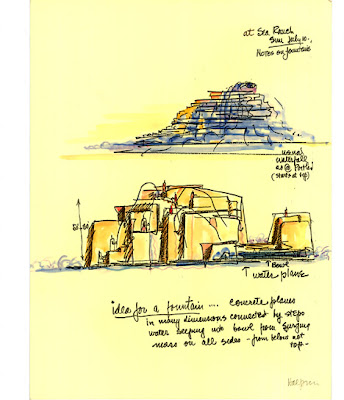 at Sea Ranch
Sun July 10,
Notes on fountains
usual
waterfall
as @
(starts at top)
↑ Bowl
↑ water plane
idea for a fountain ... concrete planes
in many dimensions connected by steps
water seeping into bowl from surging
mass on all sides - from below not
top -